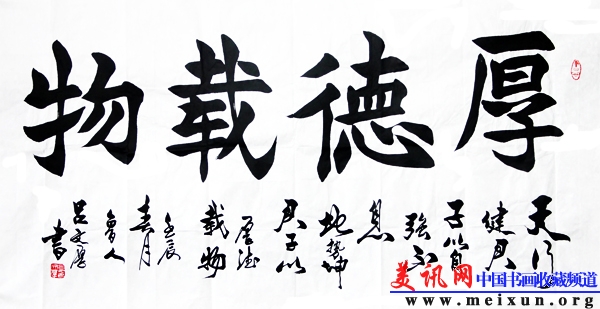 厚德載物
天行
健君
子以自
强不
息
地势坤
君子以
厚德
载物
壬辰
春月
鲁人
吕文
书
美讯网 中国书画收藏频道
www.meixun.org